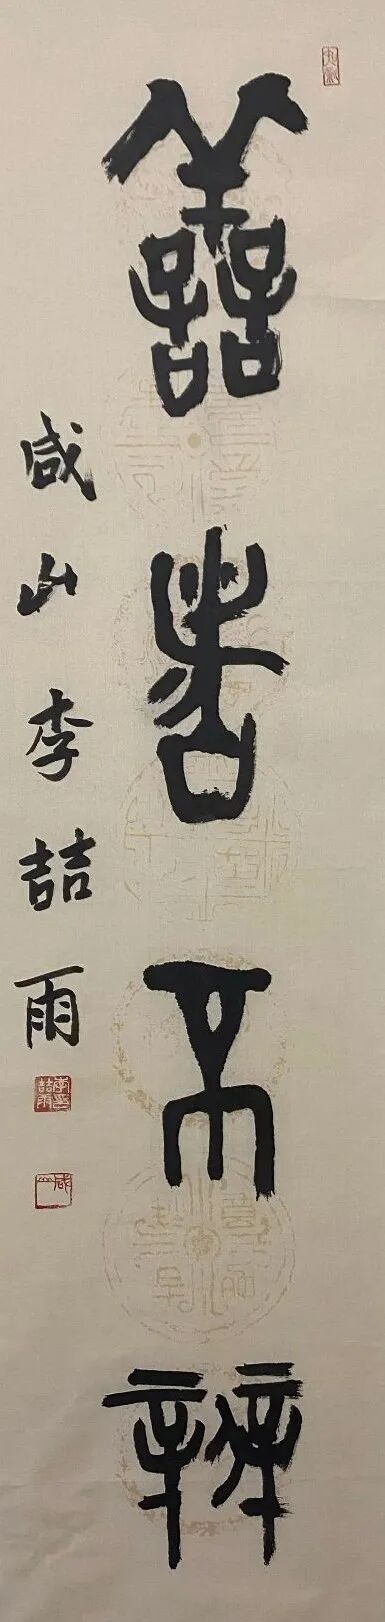 善者不辯
咸山李喆雨